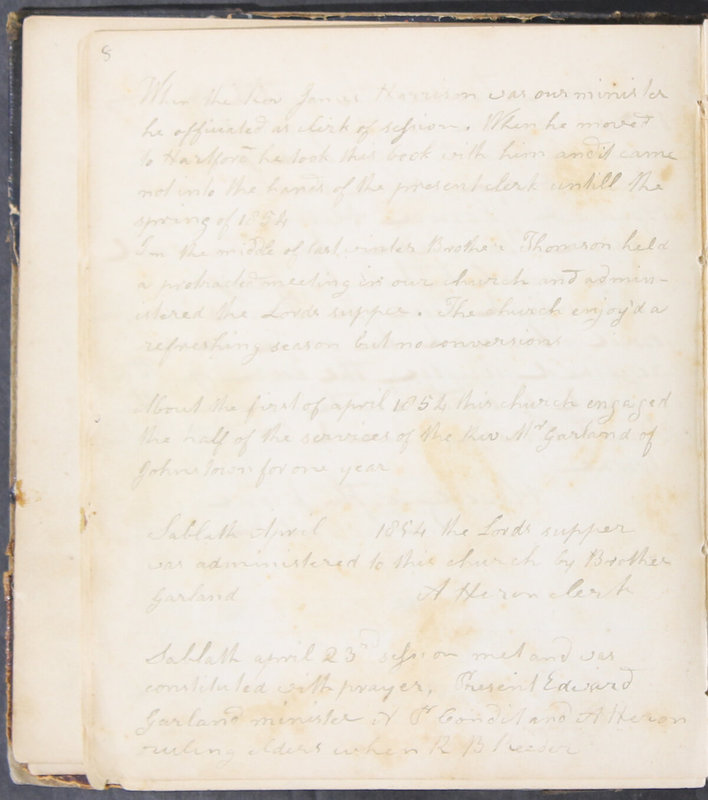 8
When the Rev James Harrison was our minister
he officiated as clerk of session. When he moved
to Hartford he took this book with him and it came
not into the hands of the present clerk untill the
spring of 1854
In the middle of last winter Brother Thomson held
a protracted meeting in our church and admin-
istered the Lords supper. The church enjoy'd a
refreshing season but no conversions
About the first of april 1854 this church engaged
the half of the services of the Rev Mr Garland of
Johnstown for one year
Sabbath April 1854 the Lords supper
was administered to this church by Brother
Garland A Heron clerk
Sabbath april 23d session met and was
constituted with prayer. Present Edward
Garland minister N P Condit and A Heron
ruling elders when R B Reeder